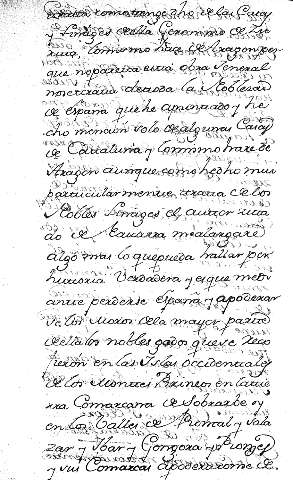 y linages della Geronimo de Zu
rita, lo mismo hare de Aragon por
que no parezca esta obra General
no se trata de toda la Nobleza
de España que he apuntado y he
cho mencion solo de algunas Casas
de Cataluña y lo mismo hare de
Aragon aunque como hecho mui
particularmente trata de los
Nobles linages el autor cita
do de Navarra me alargaré
algo mas lo que pueda hallar por
historia verdadera y es que med
ante perderse España y apoderar
se los Moros de la mayor parte
de ella los nobles godos que se reco
jieron en las Islas occidentales
de los Montes Pirineos en la tie
rra Comarcana de Sobrarbe y
en los Valles de Roncal y Sala
zar y Ibar y Gongora y
y sus Comarcas apoderaronse de